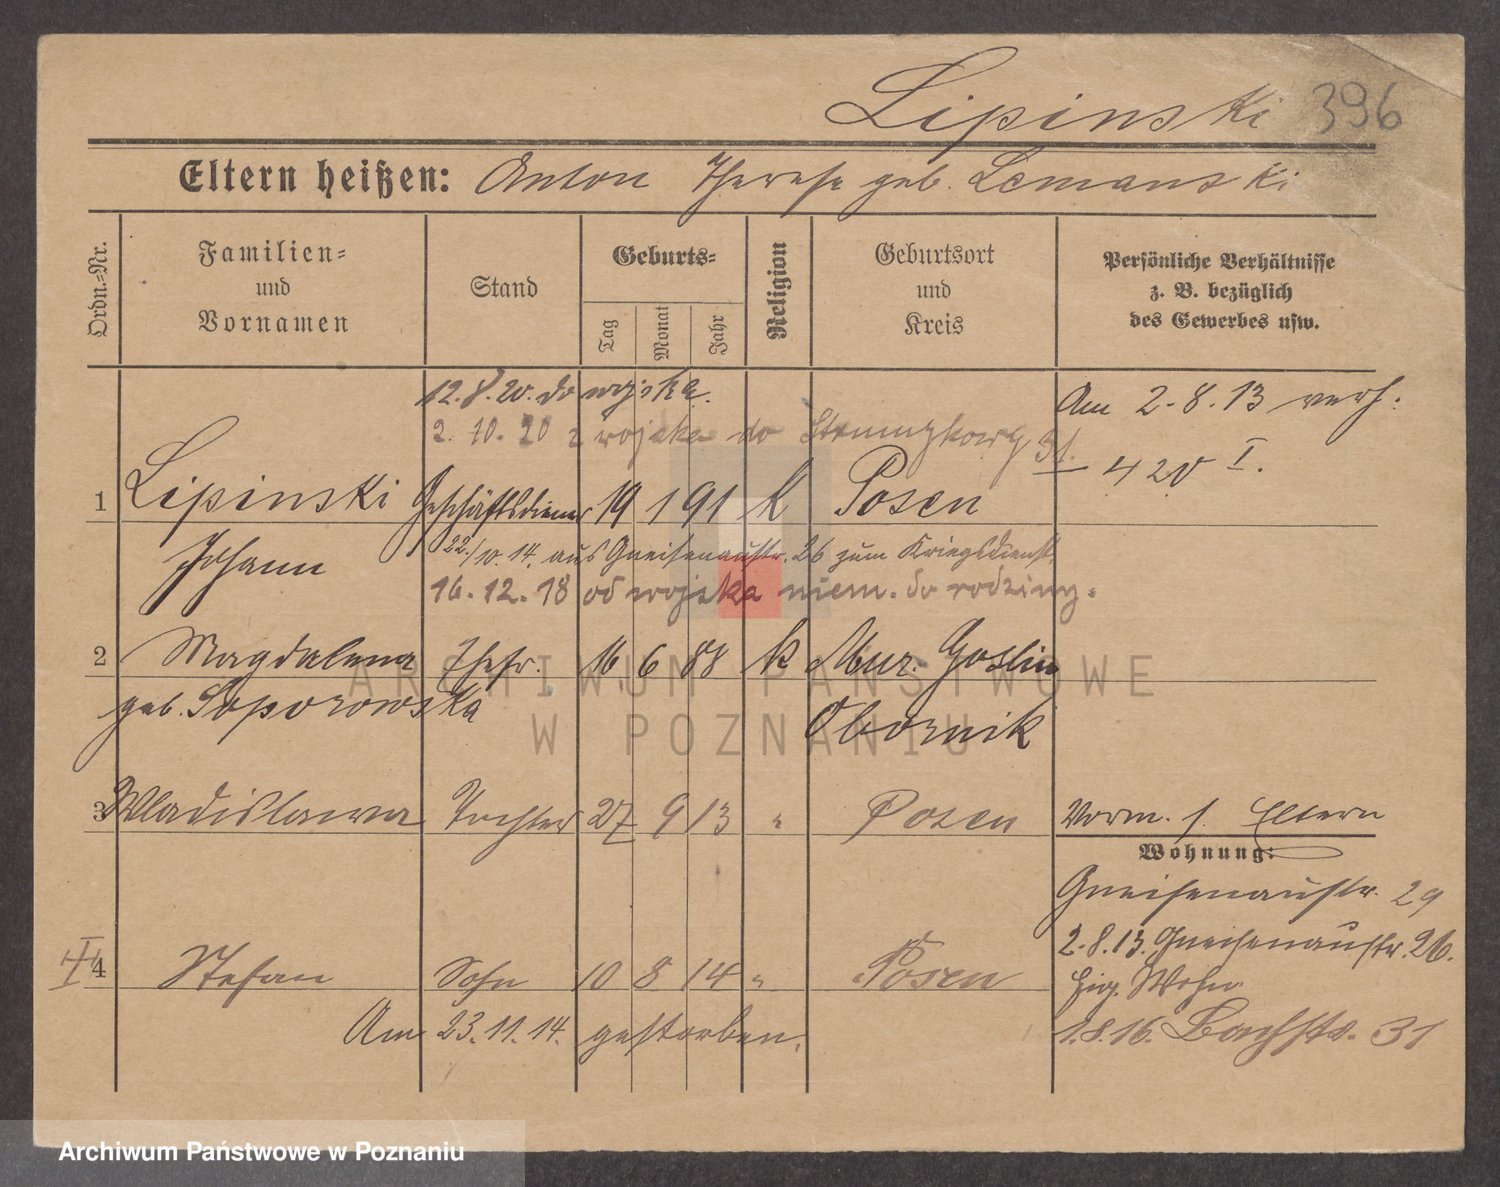 Lipinski 396
Eltern heißen: Anton Therese geb. Lemanski
Ordn.=Nr.
Familien=
und
Vornamen
Stand
Geburts=
Tag
Monat
Jahr
Religion
Geburtsort
und
Kreis
Persönliche Verhältnisse
z. B. bezüglich
des Gewerbes usw.
12.8.20. do wojska.
2. 10. 20 z wojska do 31.
Am 2.8.13 verh.
420 I.
1 Lipinski Geschäftsdiener 19 1 91 k Posen
Johann
22./10. 14. aus Gneisenaustr. 26 zum Kriegsdienst.
16.12.18 od wojska niem. do rodziny.
2 Magdalena Ehefr. 16 6 88 k Mur. Goslin
geb. Soporowska Obornik
3 Wladislawa Tochter 27 9 13 " Posen
Vorm. s. Eltern
Wohnung:
Gneisenaustr. 29
2.8.13. Gneisenaustr. 26.
Eig. Wohn.
1.8.16. Bachstr. 31
4 Stefan Sohn 10 8 14 " Posen
Am 23.11.14. gestorben.
ARCHIWUM PAŃSTWOWE
W POZNANIU
Archiwum Państwowe w Poznaniu